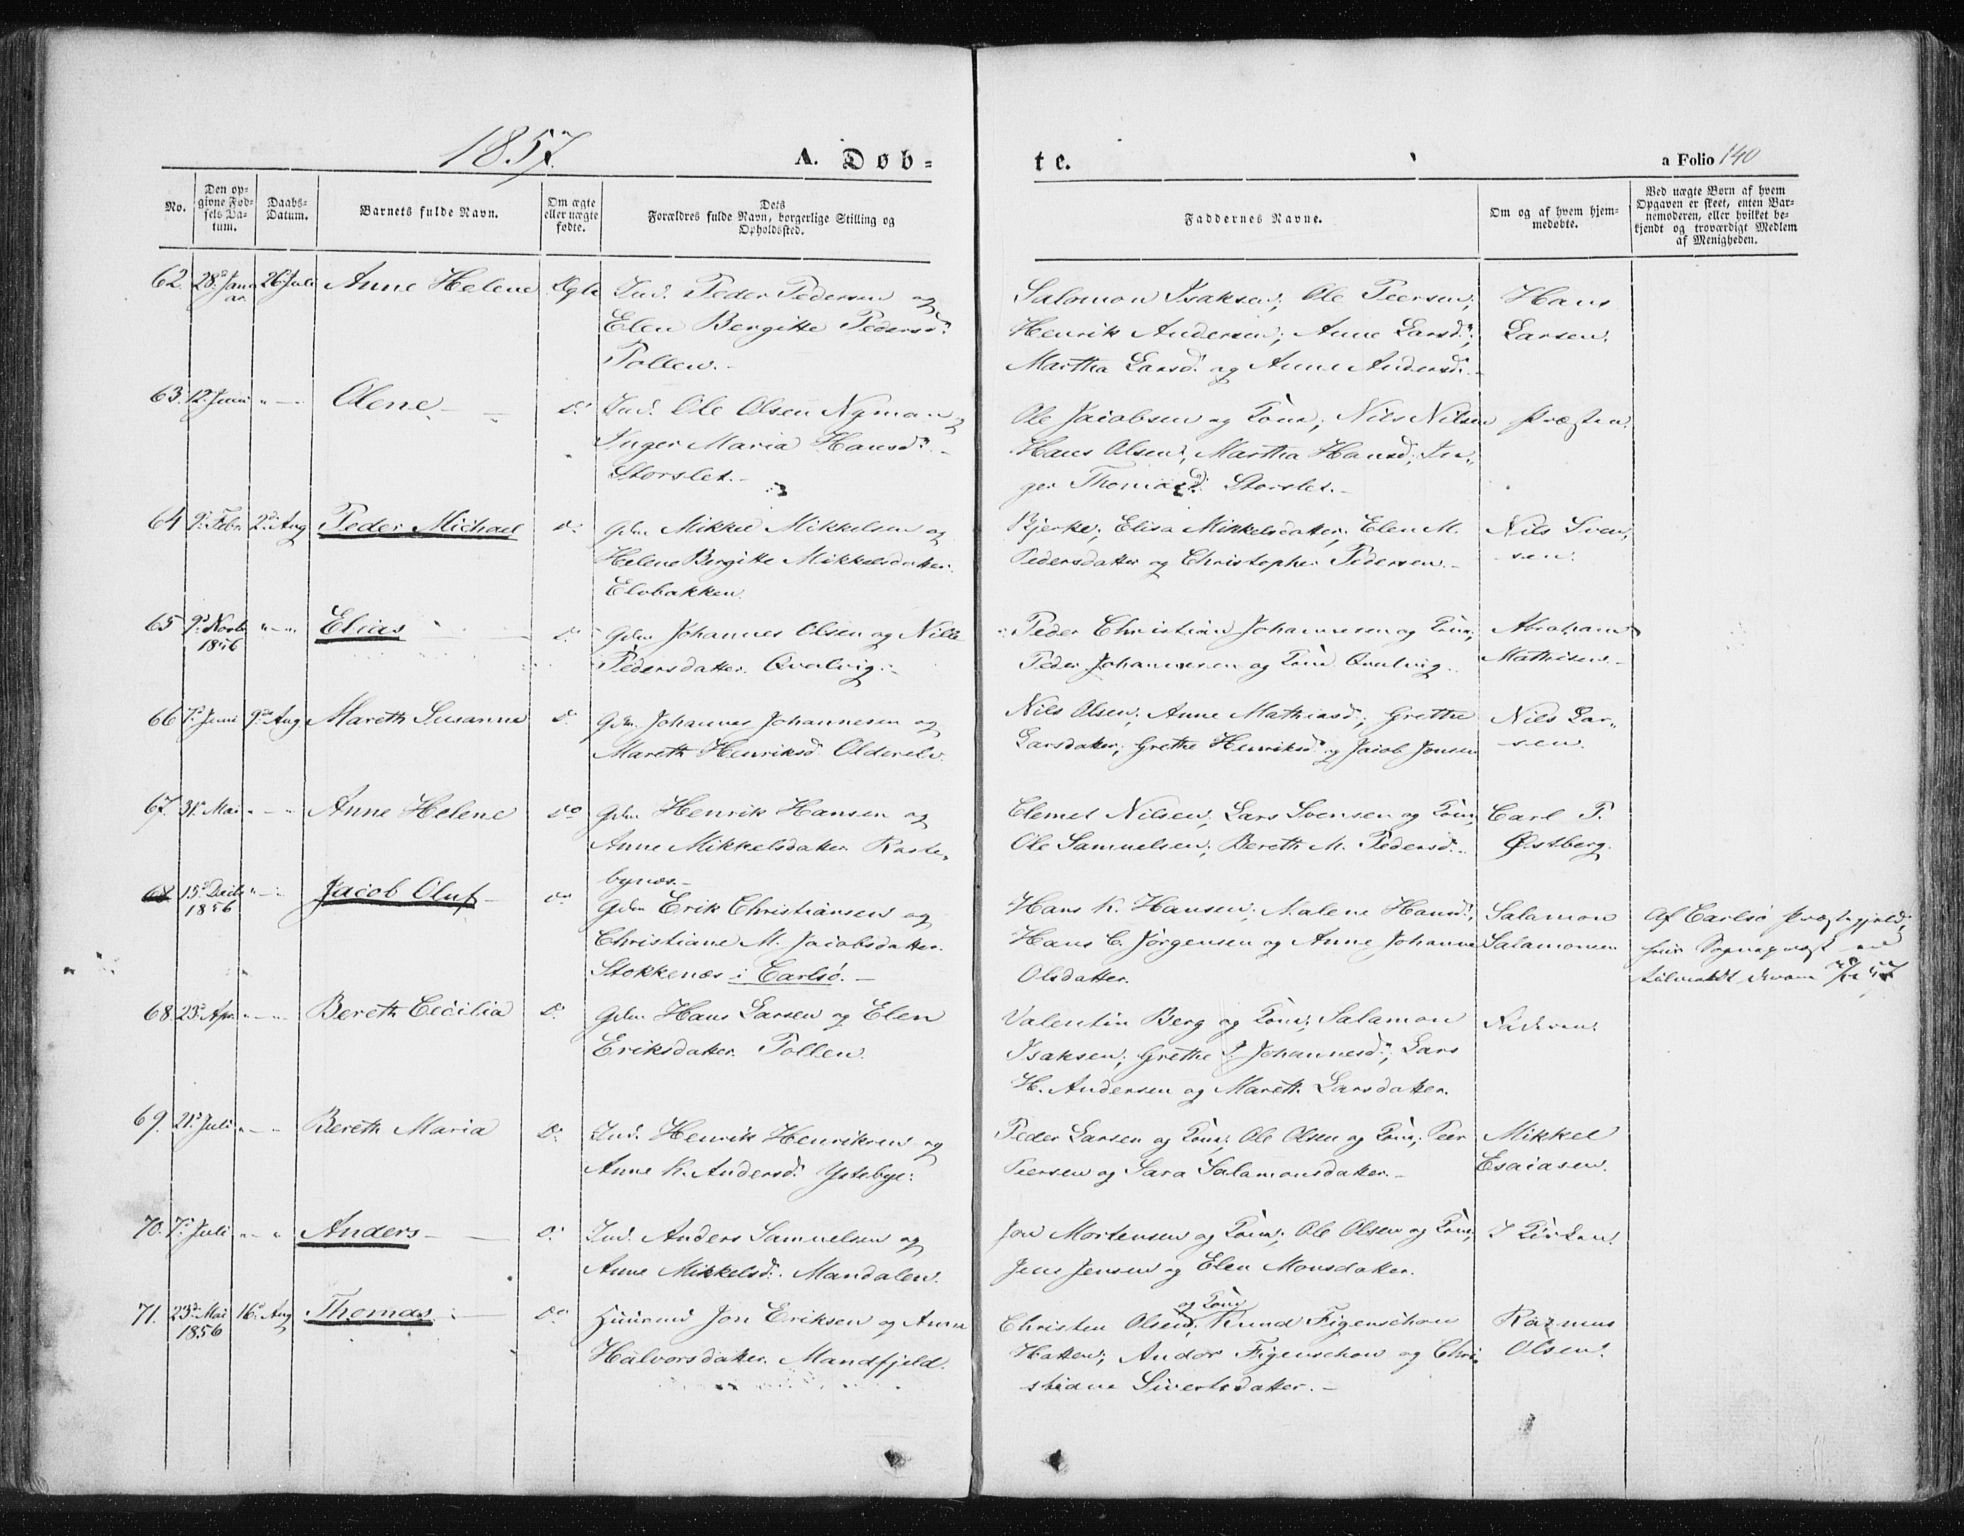 1857.
A. Døb-
te.
a Folio 140
No.
Den op-
givne Fød-
sels Da-
tum.
Daabs-
Datum.
Barnets fulde Navn.
Om ægte
eller uægte
fødte.
Dets
Forældres fulde Navn, borgerlige Stilling og
Opholdssted.
Faddernes Navne.
Om og af hvem hjem-
medøbte.
Ved uægte Børn af hvem
Opgaven er skeet, enten Bar-
nemoderen, eller hvilket be-
kjendt og troværdigt Medlem
af Menigheden.
62. 28. Janu 26 Juli Anne Helene Ægte Ind. Peder Pedersen og
ar.
Elen Bergitte Pedersd.
Pollen.
Salomon Isaksen; Ole Peersen; Hans
Henrik Andersen; Anne Larsd.; Larsen.
Martha Larsd. og Anne Andersd.
63. 12. Juni " - " Olene. D. Ind. Ole Olsen Nyman og
Inger Maria Hansd.
Storslet.
Ole Jacobsen og Kone; Nils Nilsen Præsten.
Hans Olsen; Martha Hansd.; In-
ger Thomasd. Storslet.
64 9. Febr 2. Aug Peder Michael D. Gdm Mikkel Mikkelsen og
Helene Bergitte Mikkelsdatter.
Elvbakken.
Bjerke; Elisa Mikkelsdatter; Elen M. Nils Sven-
Pedersdatter og Christopher Pedersen. sen.
65 9. Novb " - " Elias D. Gdm Johannes Olsen og Nille
1856
Pedersdatter. Qvalvig.
Peder Christian Johannesen og Kone; Abraham
Peder Johannesen og Kone Qvalvig. Mathisen.
66 7. Juni 9. Aug Mareth Susanne D. Gdm Johannes Johannesen og
Mareth Henriksd. Olderelv.
Nils Olsen; Anne Mathiasd.; Grethe Nils Lar-
Larsdatter; Grethe Henriksd. og Jacob Jonsen sen.
67. 31. Mai " - " Anne Helene Do Gdm Henrik Hansen og
Anne Mikkelsdatter Raste-
bynæs.
Clemet Nilsen; Lars Svensen og Kone; Carl P.
Ole Samuelsen; Bereth M. Pedersd. Østberg.
68 15. Decb " - " Jacob Oluf D. Gdm Erik Christiansen og
1856
Christiane M. Jacobsdatter.
Stokkenæs i Carlsø.
Hans K. Hansen; Malene Hansd.; Salamon Af Carlsø Præstegjeld;
Hans C. Jørgensen og Anne Johanne Salamonsen
Olsdatter.
68. 23. Apr. " - " Bereth Cecilia D. Gdm Hans Larsen og Elen
Eriksdatter. Pollen.
Valentin Berg og Kone; Salamon Faderen.
Isaksen; Grethe J. Johannesd.; Lars
H. Andersen og Mareth Larsdatter.
69. 21. Juli " - " Bereth Maria D. Ind. Henrik Henriksen og
Anne K. Andersd. Ytrebye.
Peder Larsen og Kone; Ole Olsen og Kone; Peer Mikkel
Peersen og Sara Salamonsdatter. Esaiasen.
70. 7. Juli " - " Anders D. Ind. Anders Samuelsen og
Anne Mikkelsd. Mandalen.
Jon Mortensen og Kone; Ole Olsen og Kone; I Kirken.
Jens Jensen og Elen Monsdatter.
71. 23. Mai 16. Aug Thomas D. Huusmd Jon Eriksen og Anne
1856
Halvorsdatter. Mandfjeld.
og Kone
Christen Olsen; Knud Figenschou Rasmus
Hatten; Andor Figenschou og Chri- Olsen.
stiane Sivertsdatter.